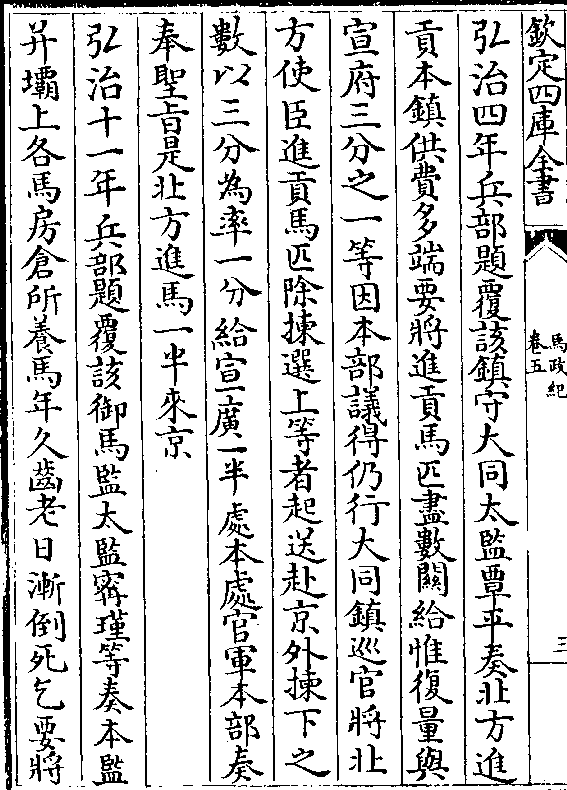 欽定四庫全書
馬政紀
卷五
三
弘治四年兵部題覆該鎮守大同太監覃平奏北方進
貢本鎮供費多端要將進貢馬匹盡數關給惟復量與
宣府三分之一等因本部議得仍行大同鎮巡官將北
方使臣進貢馬匹除揀選上等者起送赴京外揀下之
數以三分為率一分給宣府一半處本處官軍本部奏
奉聖旨是北方進馬一半來京
弘治十一年兵部題覆該御馬監太監寗瑾等奏本監
并壩上各馬房倉所養馬年久齒老日漸倒死乞要將